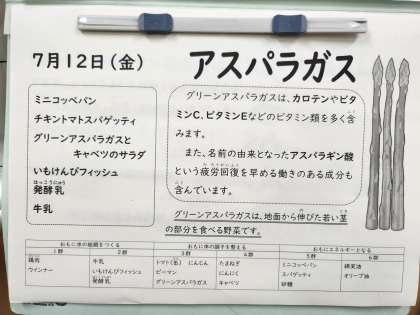 7月12日(金)
アスパラガス
ミニコッペパン
チキントマトスパゲッティ
グリーンアスパラガスと
キャベツのサラダ
いもけんぴフィッシュ
はっこうにゅう
発酵乳
牛乳
グリーンアスパラガスは、カロテンやビタ
ミンC、ビタミンEなどのビタミン類を多く含
みます。
また、名前の由来となったアスパラギン酸
という疲労回復を早める働きのある成分も
含んでいます。
グリーンアスパラガスは、地面から伸びた若い茎
の部分を食べる野菜です。
おもに体の組織をつくる おもに体の調子を整える おもにエネルギーとなる
1群 2群 3群 4群 5群 6群
鶏肉 牛乳 トマト(缶) にんじん たまねぎ ミニコッペパン 綿実油
ウインナー いもけんぴフィッシュ ピーマン にんにく スパゲティ オリーブ油
発酵乳 グリーンアスパラガス キャベツ 砂糖